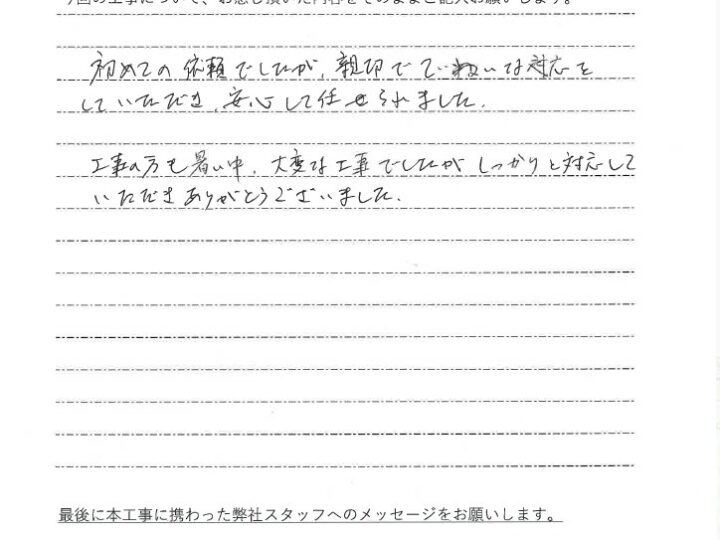 今回の工事について、お感じ頂いた内容をそのままご記入お願いします。
初めての依頼でしたが、親切でていねいな対応を
していただき、安心して任せられました。
工事の方も暑い中、大変な工事でしたがしっかりと対応して
いただきありがとうございました。
最後に本工事に携わった弊社スタッフへのメッセージをお願いします。